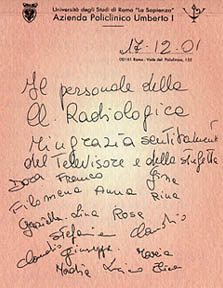 Università degli Studi di Roma "La Sapienza"
Azienda Policlinico Umberto I
17-12-01
00161 Roma - Viale del Policlinico, 155
Il personale della
Cl. Radiologica
ringrazia sentitamente
del Televisore e della stufetta
Dora Franco Gina
Filomena Anna Rina
Graziella Lina Rosa
Stefania Claudio
Claudio Giuseppe Maria
Nadia Luciano